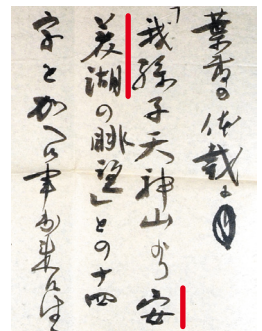 葉書の体裁は
「我孫子天神山より安
美湖の眺望」との十四
字を加へ候事出来候は